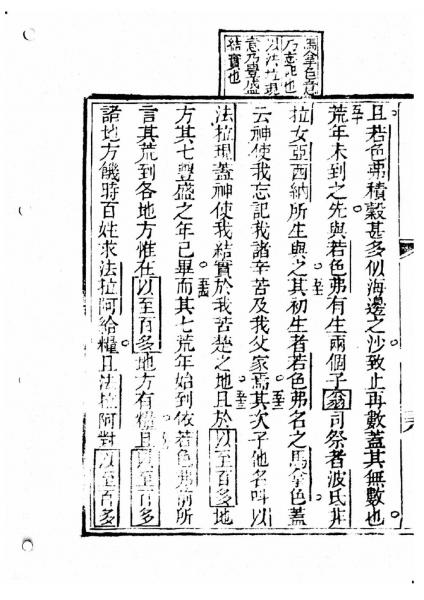 馬拿色意
乃忘記也
以法拉現
意乃豐盛
結實也
且若色弗積穀甚多似海邊之沙致止再數蓋其無數也
荒年未到之先與若色弗有生兩個子翁司祭者波氏非
拉女亞西納所生與之其初生者若色弗名之馬拿色蓋
云神使我忘記我諸辛苦及我父家焉其次子他名呌以
法拉現蓋神使我結實於我苦楚之地且於以至百多地
方其七豐盛之年已畢而其七荒年始到依若色弗前所
言其荒到各地方惟在以至百多地方有糧且以至百多
諸地方饑時百姓求法拉阿給糧且法拉阿對以至百多